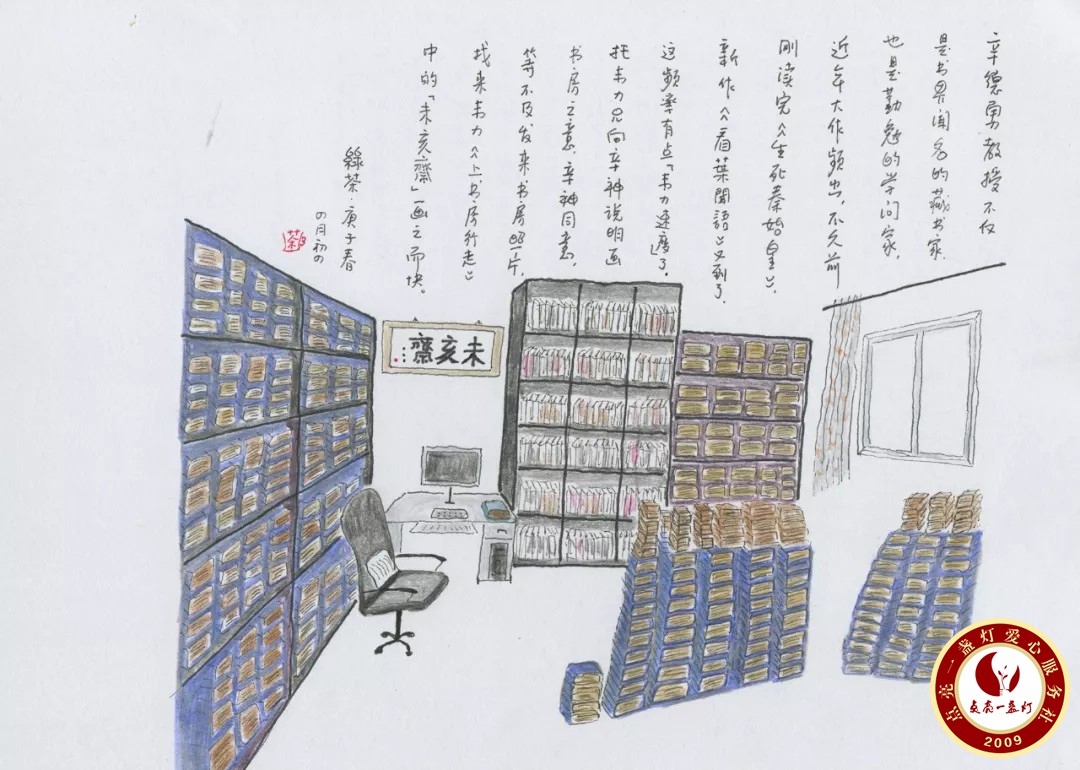 辛德勇教授不仅
是书界闻名的藏书家
也是勤勉的学问家，
近年大作频出，不久前
刚读完《生死秦始皇》，
新作《看葉闻語》又到了，
这频率有点「韦力速度」了，
托韦力兄向辛神说明画
书房之意，辛神同意，
等不及发来书房照片，
找来韦力《上书房行走》
中的「未亥齋」画之而快。
綠茶·庚子春
の月初の
茶
未亥齋
点亮一盏灯爱心服务社
点亮一盏灯
2009